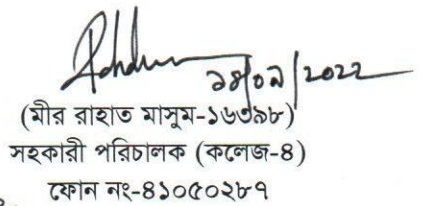 ১৪/০৯/2022
(মীর রাহাত মাসুম-১৬৩৯৮)
সহকারী পরিচালক (কলেজ-৪)
ফোন নং-৪১০৫০২৮৭